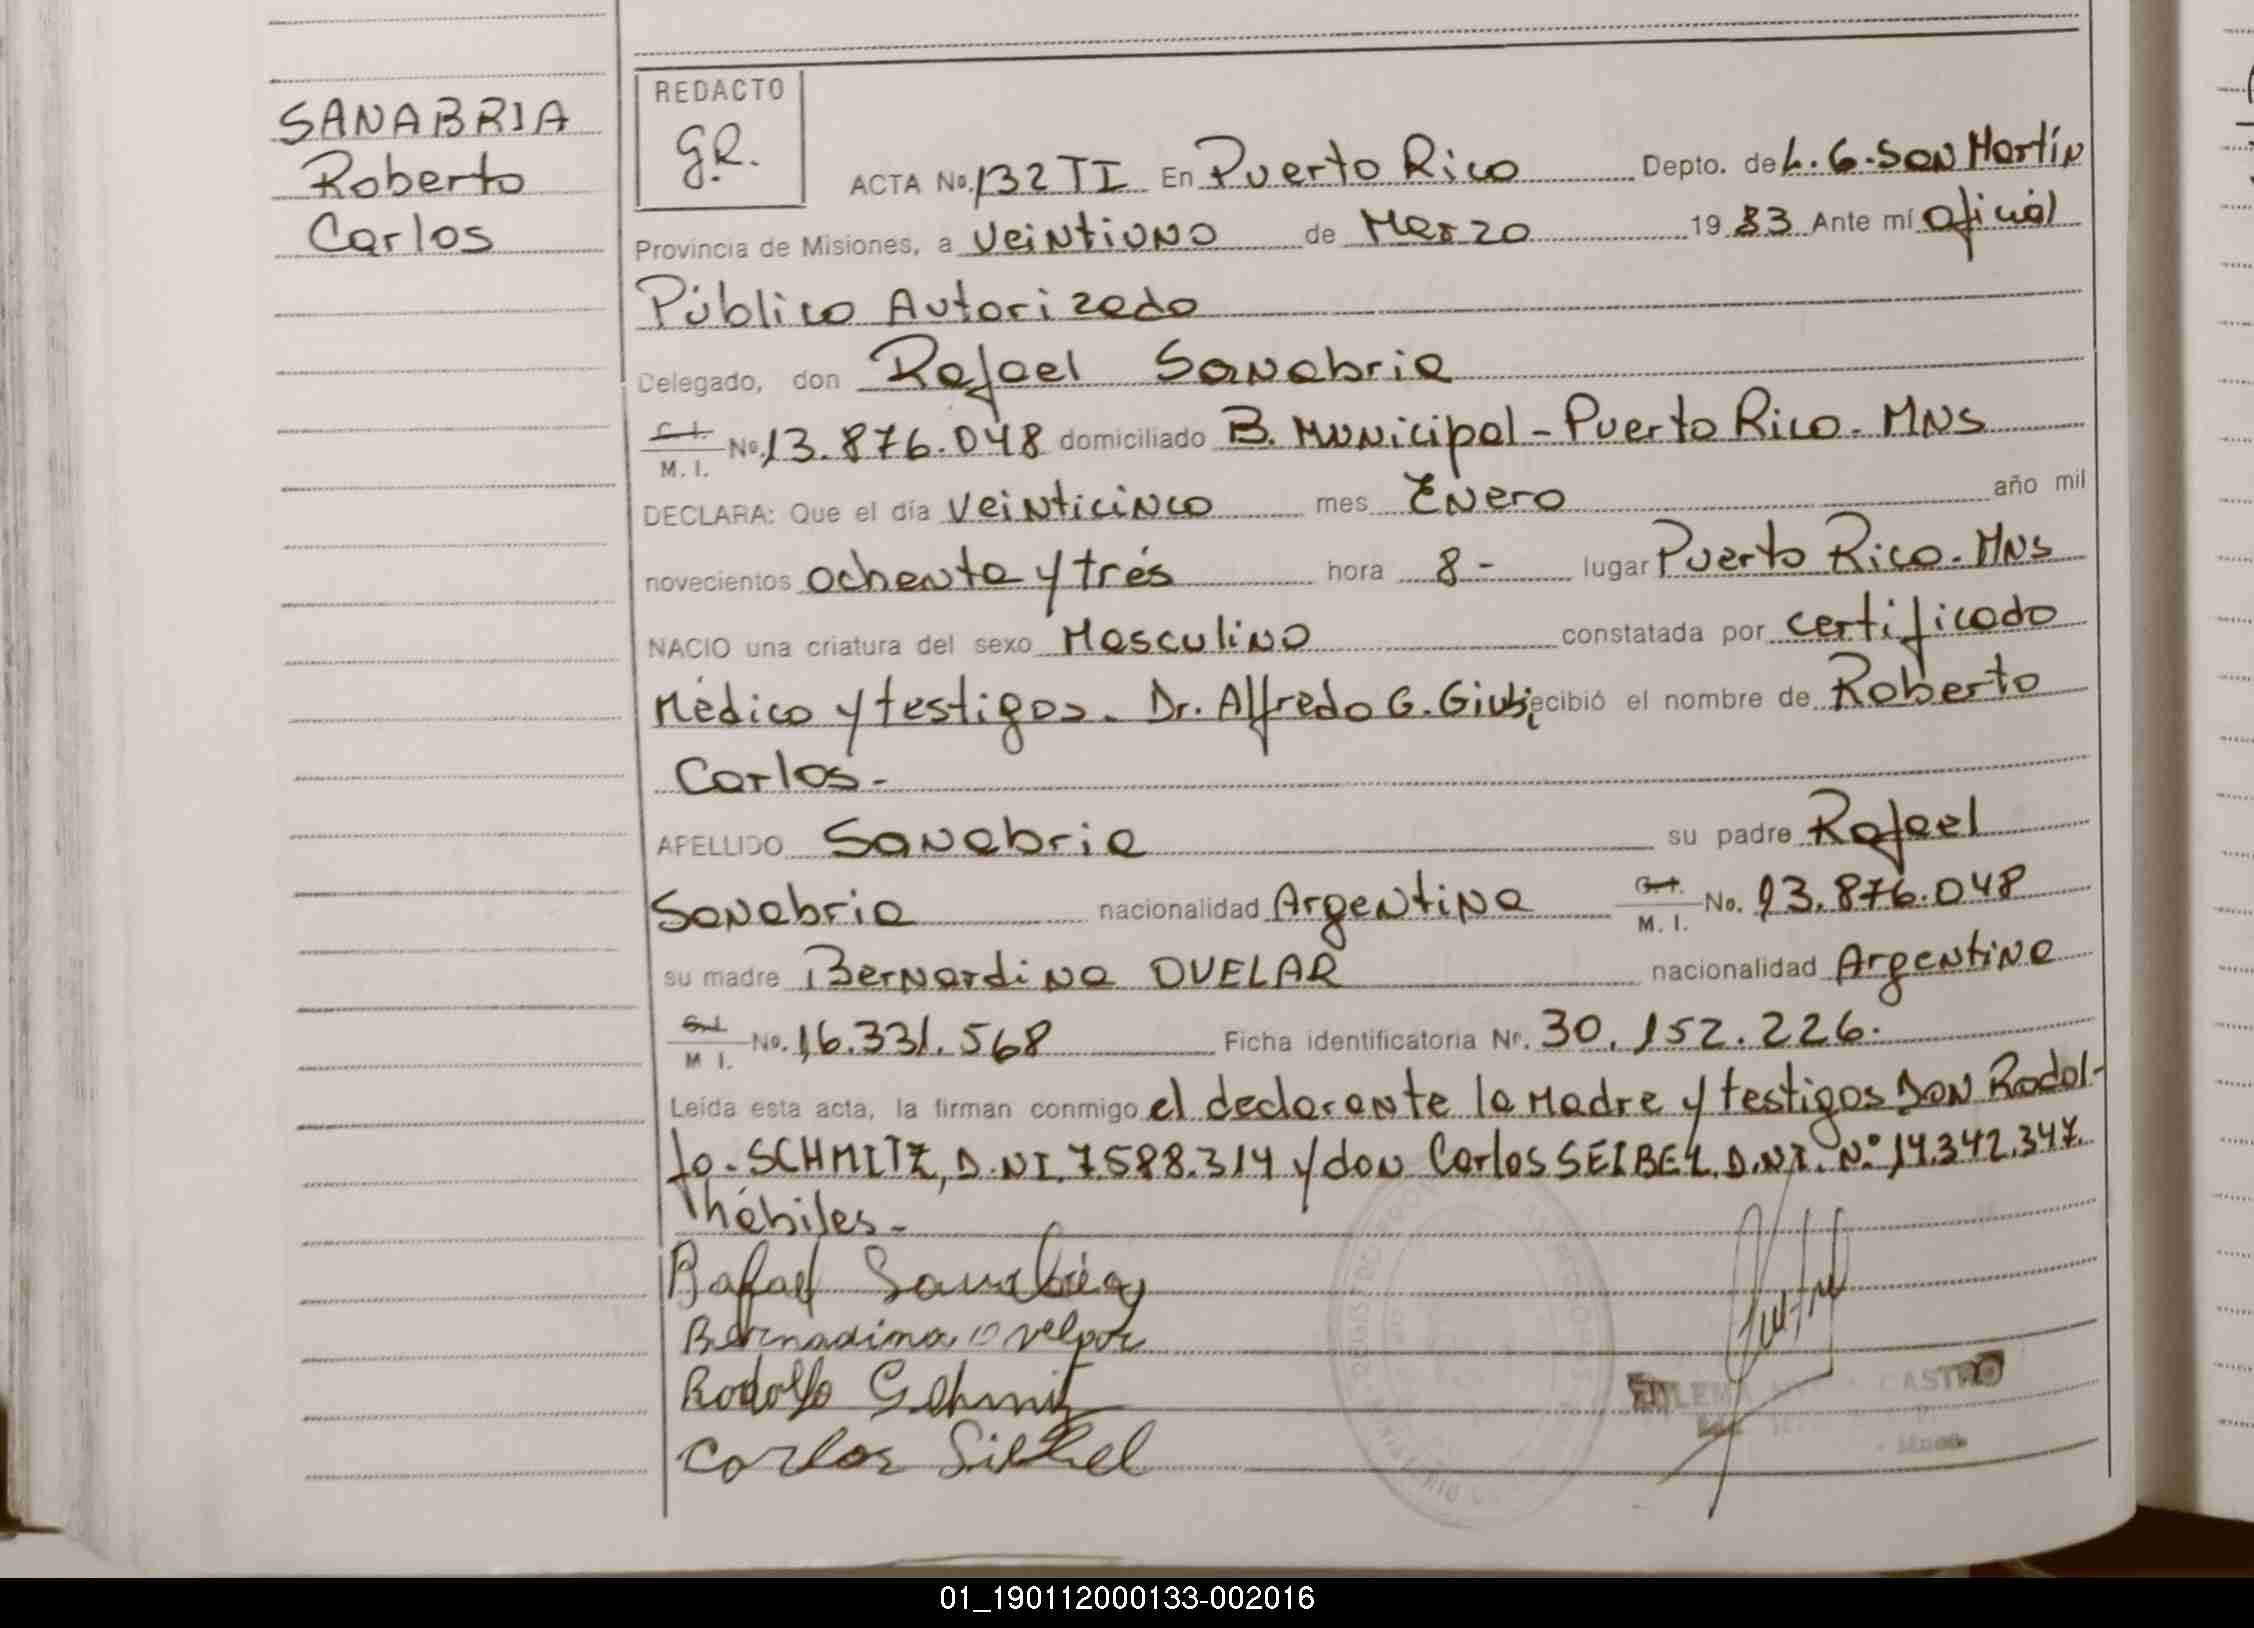 SANABRIA
Roberto
Carlos
REDACTO
G.R.
ACTA No. 132 TI En Puerto Rico Depto. de L. G. San Martín
Provincia de Misiones, a veintiuno de Marzo 19 83 Ante mí oficial
Público Autorizado
Delegado, don Rafael Sanabria
C. I. M. I. No. 13.876.048 domiciliado B. Municipal - Puerto Rico. MNS
DECLARA: Que el día veinticinco mes Enero año mil
novecientos ochenta y trés hora 8 - lugar Puerto Rico. MNS
NACIO una criatura del sexo Masculino constatada por certificado
Médico y testigos. Dr. Alfredo G. Giubi recibió el nombre de Roberto
Carlos.-
APELLIDO Sanabria su padre Rafael
Sanabria nacionalidad Argentina C. I. M. I. No. 13.876.048
su madre Bernardina OVELAR nacionalidad Argentina
C. I. M I. No. 16.331.568 Ficha identificatoria Nr. 30.152.226.
Leída esta acta, la firman conmigo el declarante la Madre y testigos DON Rodol-
fo. SCHMITZ, D.NI. 7.588.314 y don Carlos SEIBEL. D.N.I. N.º 14.342.347.
hábiles.-
Rafael Sanabria
Bernadina Ovelar
Rodolfo Schmitz
Carlos Seibel
CASTRO
01_190112000133-002016